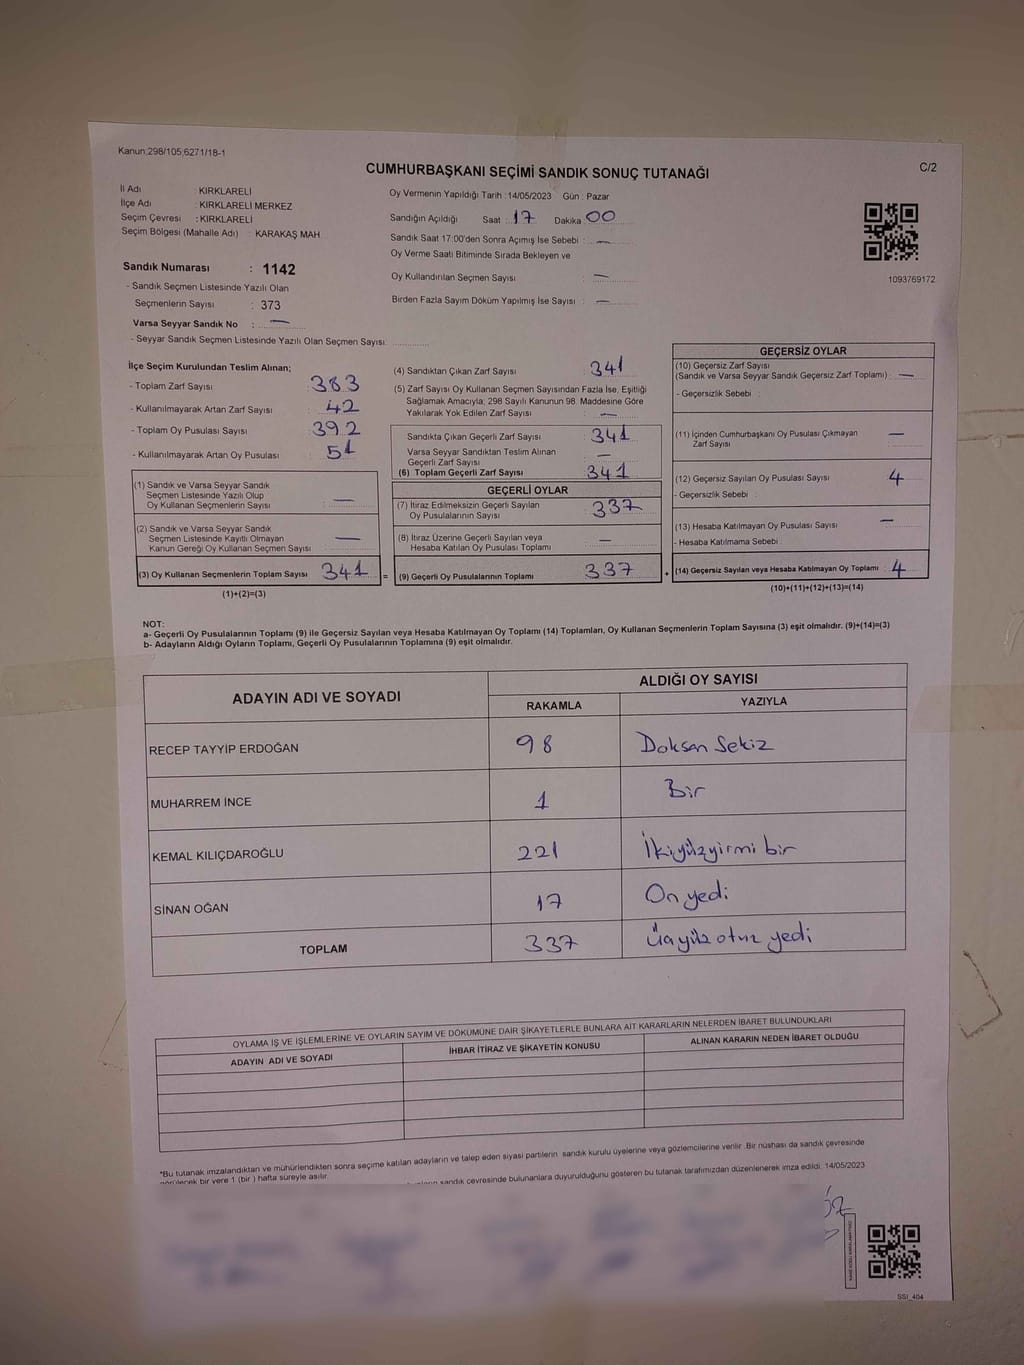 Kanun;298/105;6271/18-1
CUMHURBAŞKANI SEÇİMİ SANDIK SONUÇ TUTANAĞI
C/2
İl Adı : KIRKLARELİ
İlçe Adı : KIRKLARELİ MERKEZ
Seçim Çevresi : KIRKLARELİ
Seçim Bölgesi (Mahalle Adı) : KARAKAŞ MAH.
Oy Vermenin Yapıldığı Tarih : 14/05/2023 Gün : Pazar
Sandığın Açıldığı Saat : 17 Dakika : 00
Sandık Saat 17:00'den Sonra Açımış İse Sebebi : —
Oy Verme Saati Bitiminde Sırada Bekleyen ve
Oy Kullandırılan Seçmen Sayısı : —
Birden Fazla Sayım Döküm Yapılmış İse Sayısı : —
1093769172
Sandık Numarası : 1142
- Sandık Seçmen Listesinde Yazılı Olan
Seçmenlerin Sayısı : 373
Varsa Seyyar Sandık No : —
- Seyyar Sandık Seçmen Listesinde Yazılı Olan Seçmen Sayısı:
İlçe Seçim Kurulundan Teslim Alınan;
- Toplam Zarf Sayısı : 383
- Kullanılmayarak Artan Zarf Sayısı : 42
- Toplam Oy Pusulası Sayısı : 392
- Kullanılmayarak Artan Oy Pusulası : 51
(1) Sandık ve Varsa Seyyar Sandık
Seçmen Listesinde Yazılı Olup
Oy Kullanan Seçmenlerin Sayısı : —
(2) Sandık ve Varsa Seyyar Sandık
Seçmen Listesinde Kayıtlı Olmayan
Kanun Gereği Oy Kullanan Seçmen Sayısı : —
(3) Oy Kullanan Seçmenlerin Toplam Sayısı : 341
(1)+(2)=(3)
(4) Sandıktan Çıkan Zarf Sayısı : 341
(5) Zarf Sayısı Oy Kullanan Seçmen Sayısından Fazla İse, Eşitliği
Sağlamak Amacıyla; 298 Sayılı Kanunun 98. Maddesine Göre
Yakılarak Yok Edilen Zarf Sayısı : —
Sandıkta Çıkan Geçerli Zarf Sayısı : 341
Varsa Seyyar Sandıktan Teslim Alınan
Geçerli Zarf Sayısı : —
(6) Toplam Geçerli Zarf Sayısı : 341
GEÇERLİ OYLAR
(7) İtiraz Edilmeksizin Geçerli Sayılan
Oy Pusulalarının Sayısı : 337
(8) İtiraz Üzerine Geçerli Sayılan veya
Hesaba Katılan Oy Pusulası Toplamı : —
= (9) Geçerli Oy Pusulalarının Toplamı : 337
GEÇERSİZ OYLAR
(10) Geçersiz Zarf Sayısı
(Sandık ve Varsa Seyyar Sandık Geçersiz Zarf Toplamı) : —
- Geçersizlik Sebebi :
(11) İçinden Cumhurbaşkanı Oy Pusulası Çıkmayan
Zarf Sayısı : —
(12) Geçersiz Sayılan Oy Pusulası Sayısı : 4
- Geçersizlik Sebebi :
(13) Hesaba Katılmayan Oy Pusulası Sayısı : —
- Hesaba Katılmama Sebebi :
+ (14) Geçersiz Sayılan veya Hesaba Katılmayan Oy Toplamı : 4
(10)+(11)+(12)+(13)=(14)
NOT:
a- Geçerli Oy Pusulalarının Toplamı (9) ile Geçersiz Sayılan veya Hesaba Katılmayan Oy Toplamı (14) Toplamları, Oy Kullanan Seçmenlerin Toplam Sayısına (3) eşit olmalıdır. (9)+(14)=(3)
b- Adayların Aldığı Oyların Toplamı, Geçerli Oy Pusulalarının Toplamına (9) eşit olmalıdır.
ADAYIN ADI VE SOYADI
ALDIĞI OY SAYISI
RAKAMLA YAZIYLA
RECEP TAYYİP ERDOĞAN 98 Doksan Sekiz
MUHARREM İNCE 1 Bir
KEMAL KILIÇDAROĞLU 221 İkiyüzyirmi bir
SİNAN OĞAN 17 On yedi
TOPLAM 337 Üçyüz otuz yedi
OYLAMA İŞ VE İŞLEMLERİNE VE OYLARIN SAYIM VE DÖKÜMÜNE DAİR ŞİKAYETLERLE BUNLARA AİT KARARLARIN NELERDEN İBARET BULUNDUKLARI
ADAYIN ADI VE SOYADI İHBAR İTİRAZ VE ŞİKAYETİN KONUSU ALINAN KARARIN NEDEN İBARET OLDUĞU
*Bu tutanak imzalandıktan ve mühürlendikten sonra seçime katılan adayların ve talep eden siyasi partilerin sandık kurulu üyelerine veya gözlemcilerine verilir .Bir nüshası da sandık çevresinde
görülecek bir yere 1 (bir ) hafta süreyle asılır.
sandık çevresinde bulunanlara duyurulduğunu gösteren bu tutanak tarafımızdan düzenlenerek imza edildi. 14/05/2023
SSI_404